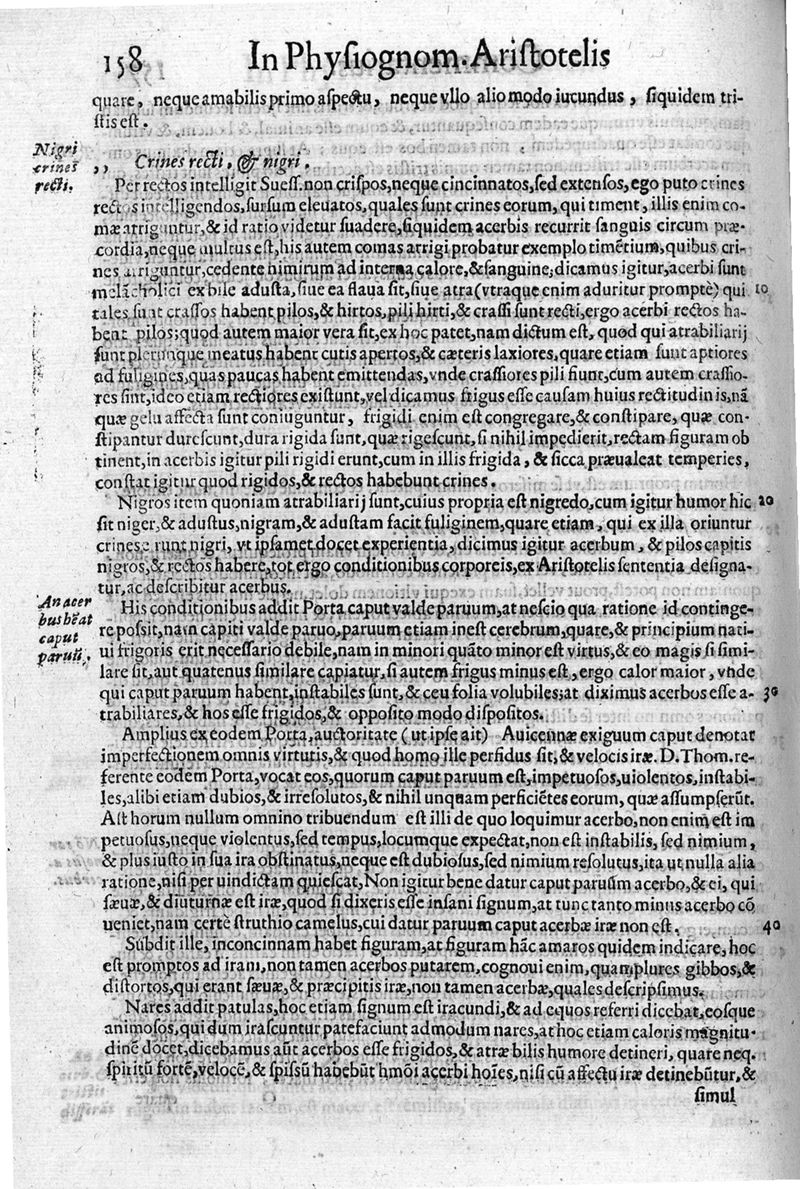 158 In Physiognom. Aristotelis
quare, neque amabilis primo aspectu, neque vllo alio modo iucundus, siquidem tri-
stis est.
Nigri
crines
recti.
,, Crines recti, & nigri.
Per rectos intelligit Suess. non crispos, neque cincinnatos, sed extensos, ego puto crines
rectos intelligendos, sursum eleuatos, quales sunt crines eorum, qui timent, illis enim co-
mæ arriguntur, & id ratio videtur suadere, siquidem acerbis recurrit sanguis circum præ-
cordia, neque multus est, his autem comas arrigi probatur exemplo timẽtium, quibus cri-
nes arriguntur, cedente nimirum ad interna calore, & sanguine; dicamus igitur, acerbi sunt
melãcholici ex bile adusta, siue ea flaua sit, siue atra (vtraque enim aduritur promptè) qui 10
tales sunt crassos habent pilos, & hirtos, pili hirti, & crassi sunt recti, ergo acerbi rectos ha-
bent pilos; quod autem maior vera sit, ex hoc patet, nam dictum est, quod qui atrabiliarij
sunt plerunque meatus habent cutis apertos, & cæteris laxiores, quare etiam sunt aptiores
ad fuligines, quas paucas habent emittendas, vnde crassiores pili fiunt, cum autem crassio-
res sint, ideo etiam rectiores existunt, vel dicamus frigus esse causam huius rectitudinis, nã
quæ gelu affecta sunt coniuguntur, frigidi enim est congregare, & constipare, quæ con-
stipantur durescunt, dura rigida sunt, quæ rigescunt, si nihil impedierit, rectam figuram ob
tinent, in acerbis igitur pili rigidi erunt, cum in illis frigida, & sicca præualeat temperies,
constat igitur quod rigidos, & rectos habebunt crines.
Nigros item quoniam atrabiliarij sunt, cuius propria est nigredo, cum igitur humor hic 20
sit niger, & adustus, nigram, & adustam facit fuliginem, quare etiam, qui ex illa oriuntur
crines erunt nigri, vt ipsamet docet experientia, dicimus igitur acerbum, & pilos capitis
nigros, & rectos habere, tot ergo conditionibus corporeis, ex Aristotelis sententia designa-
tur, ac describitur acerbus.
An acer
bus hẽat
caput
paruũ.
His conditionibus addit Porta caput valde paruum, at nescio qua ratione id continge-
re possit, nam capiti valde paruo, paruum etiam inest cerebrum, quare, & principium nati-
ui frigoris erit necessario debile, nam in minori quãto minor est virtus, & eo magis si simi-
lare sit, aut quatenus similare capiatur, si autem frigus minus est, ergo calor maior, vnde
qui caput paruum habent, instabiles sunt, & ceu folia volubiles; at diximus acerbos esse a- 30
trabiliares, & hos esse frigidos, & opposito modo dispositos.
Amplius ex eodem Porta, auctoritate (ut ipse ait) Auicennæ exiguum caput denotat
imperfectionem omnis virtutis, & quod homo ille perfidus sit, & velocis iræ. D. Thom. re-
ferente eodem Porta, vocat eos, quorum caput paruum est, impetuosos, uiolentos, instabi-
les, alibi etiam dubios, & irresolutos, & nihil unquam perficiẽtes eorum, quæ assumpserũt.
Ast horum nullum omnino tribuendum est illi de quo loquimur acerbo, non enim est im
petuosus, neque violentus, sed tempus, locumque expectat, non est instabilis, sed nimium,
& plus iusto in sua ira obstinatus, neque est dubiosus, sed nimium resolutus, ita ut nulla alia
ratione, nisi per uindictam quiescat, Non igitur bene datur caput paruum acerbo, & ei, qui
sæuæ, & diuturnæ est iræ, quod si dixeris esse insani signum, at tunc tanto minus acerbo cõ
ueniet, nam certè struthio camelus, cui datur paruum caput acerbæ iræ non est. 40
Subdit ille, inconcinnam habet figuram, at figuram hãc amaros quidem indicare, hoc
est promptos ad iram, non tamen acerbos putarem, cognoui enim, quamplures gibbos, &
distortos, qui erant sæuæ, & præcipitis iræ, non tamen acerbæ, quales descripsimus.
Nares addit patulas, hoc etiam signum est iracundi, & ad equos referri dicebat, eosque
animosos, qui dum irascuntur patefaciunt admodum nares, at hoc etiam caloris magnitu-
dinẽ docet, dicebamus aũt acerbos esse frigidos, & atræ bilis humore detineri, quare neq.
spiritũ fortẽ, velocẽ, & spissũ habebũt hmõi acerbi hoĩes, nisi cũ affectu iræ detinebũtur, &
simul